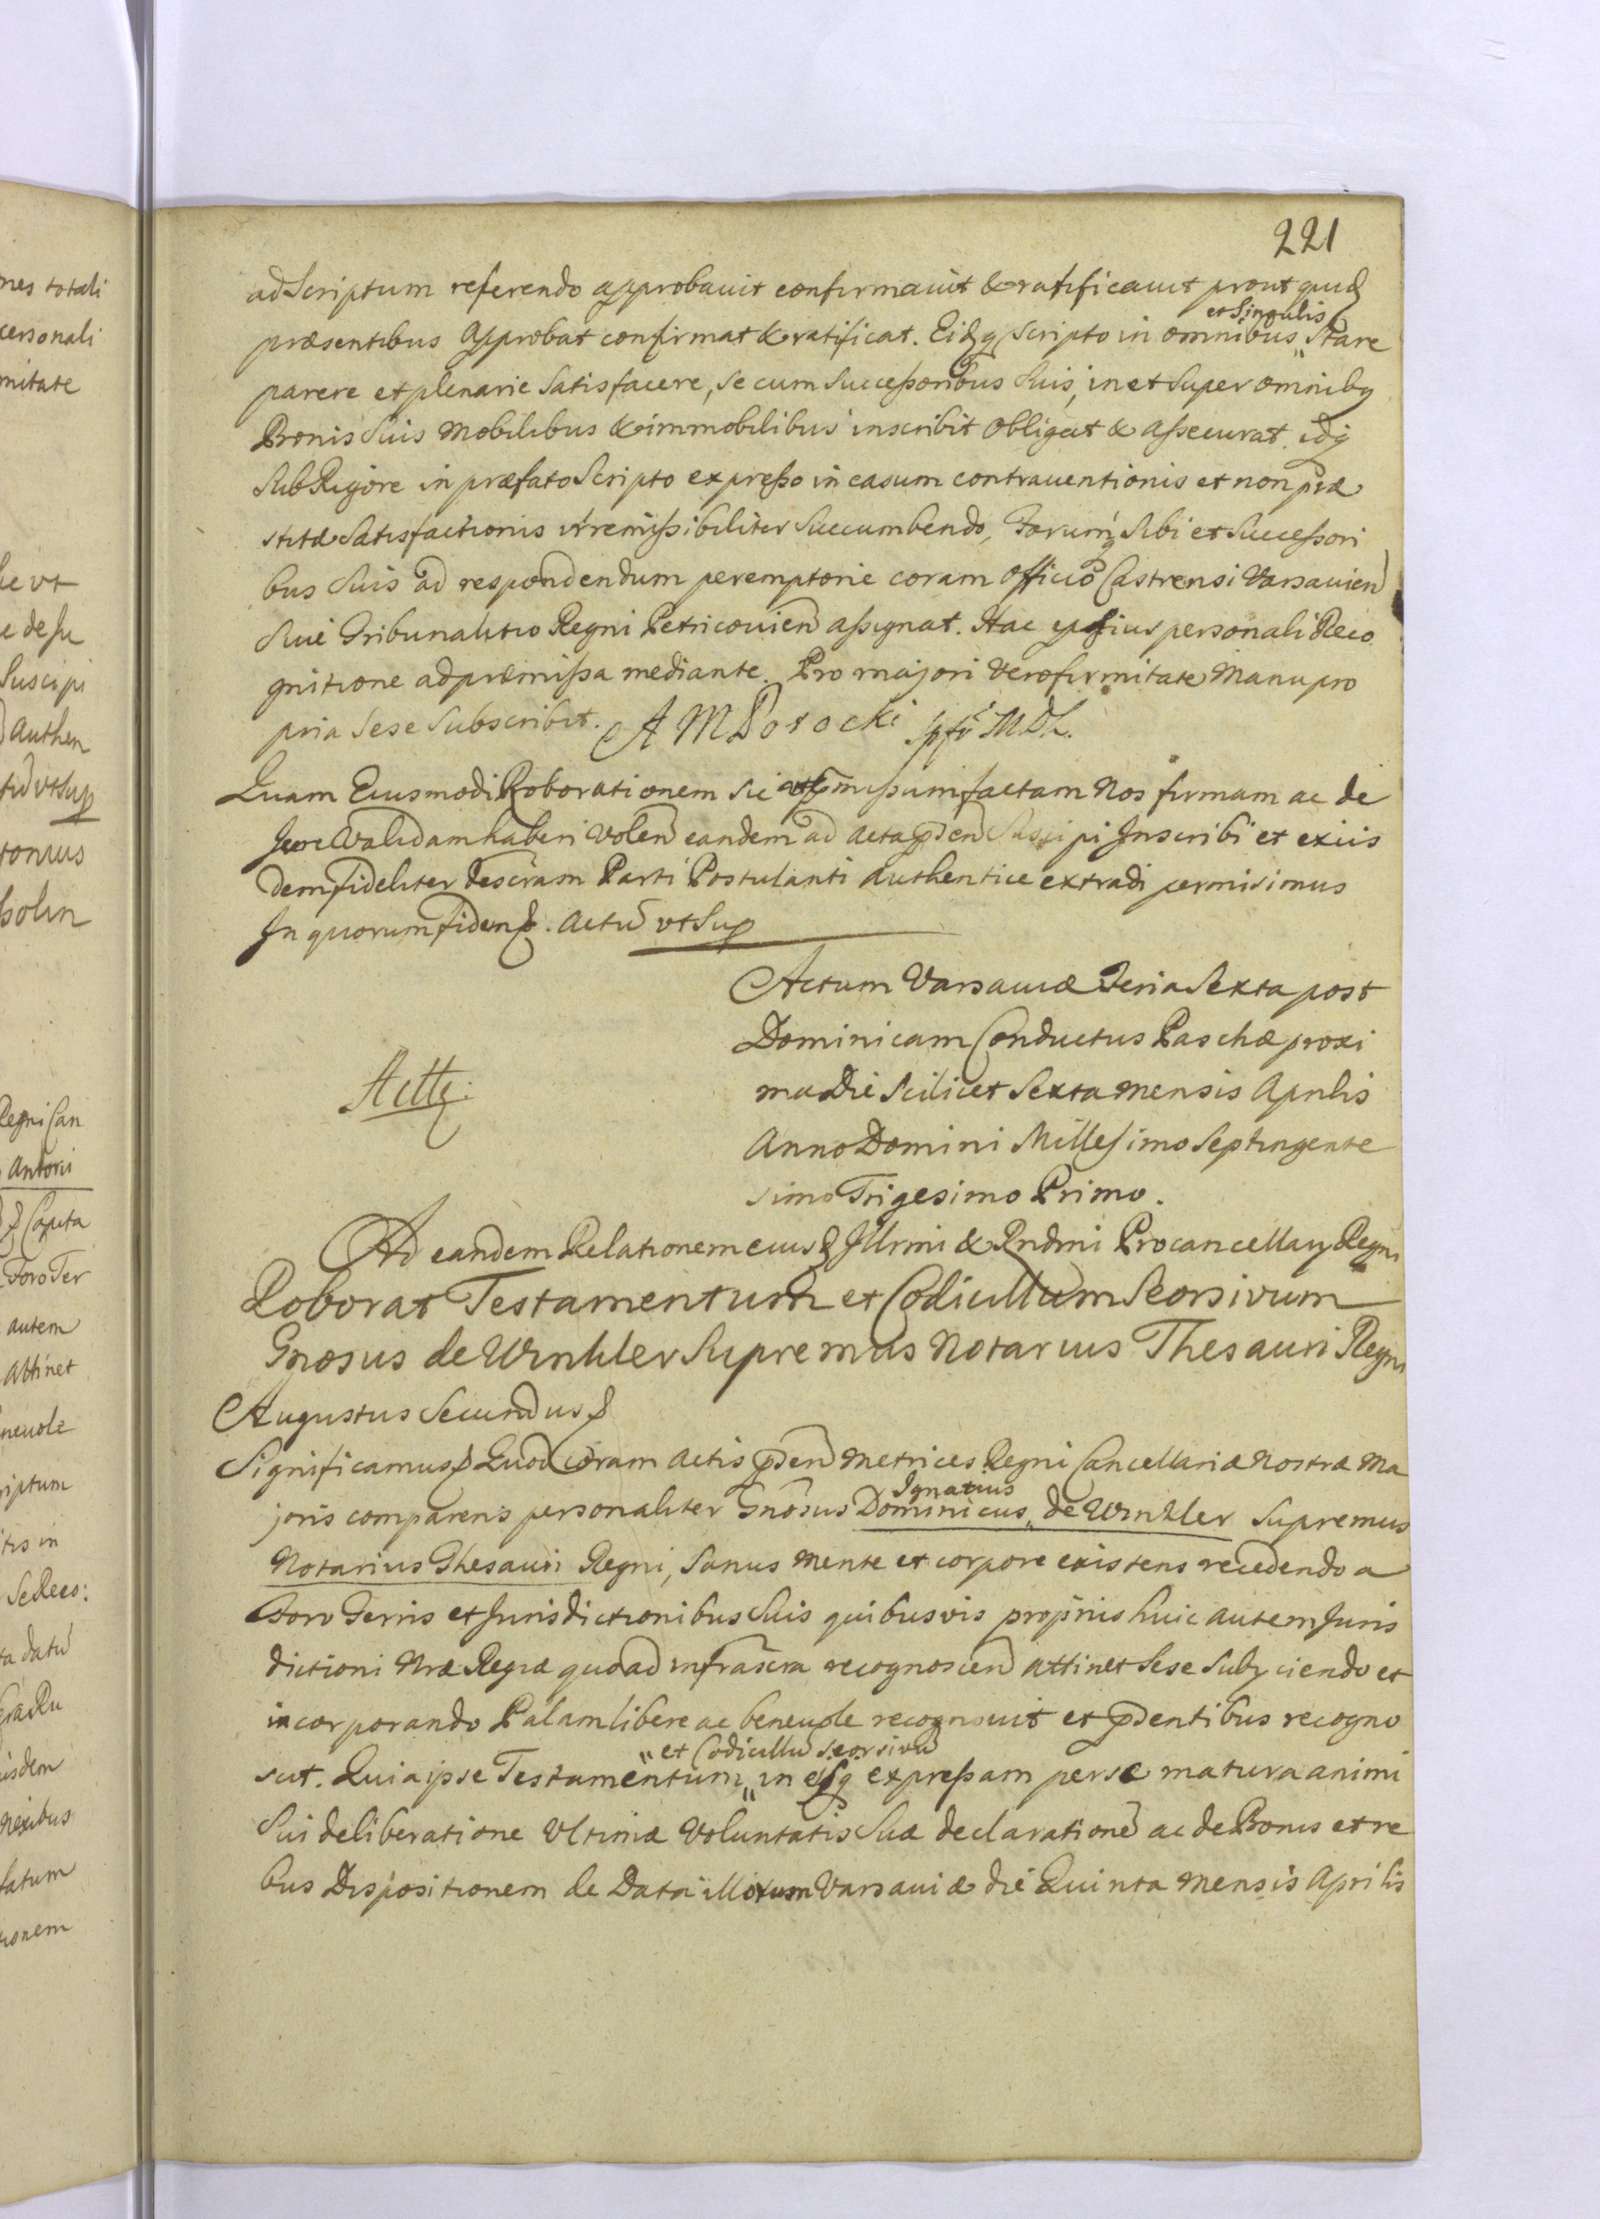 221
ad Scriptum referendo approbavit confirmavit & ratificavit prout quidē
et Singulis
præsentibus Approbat confirmat & ratificat. Eidq Scripto in omnibus " Stare
parere et plenarie Satisfacere, se cum Successoribus Suis, in et Super omnibq
Bonis Suis Mobilibus & immobilibus inscribit Obligat & Assecurat idq
Sub Rigore in præfato Scripto expresso in casum contraventionis et non præ
stitæ Satisfactionis irremissibiliter Succumbendo, Forumq Sibi et Successori
bus Suis ad respondendum peremptorie coram Officio Castrensi Varsavien
Sive Tribunalitio Regni Petricovien assignat. Hac ipsius personali Reco
gnitione ad præmissa mediante. Pro majori vero firmitate Manu pro
pria Sese Subscribit. A M Potocki MDL.
Quam Eiusmodi Roborationem Sic ut pmissum factam Nos firmam ac de
Jure Validam haberi Volen eandem ad Acta pden Suscipi Inscribi et exiis
dem fideliter descram Parti Postulanti Authentice extradi permisimus
In quorum fidem &. Actū ut Sup
Actum Varsaviæ Feria Sexta post
Dominicam Conductus Paschæ proxi
ma Die Scilicet Sexta Mensis Aprilis
Anno Domini Millesimo Septingente
simo Trigesimo Primo.
Ad eandem Relationem eius & Illrmi & Rndmi Procancellarÿ Regni
Roborat Testamentum et Codicillum Seorsivum
Gnosus de Winkler Supremus Notarius Thesauri Regni
Augustus Secundus &
Significamus & Quod Coram Actis pden Metrices Regni Cancellariæ Nostræ Ma
Ignatius
joris comparens personaliter Gnosus Dominicus " de Winkler Supremus
Notarius Thesauri Regni, Sanus Mente et corpore existens recedendo a
Foro Terris et Jurisdictionibus Suis quibusvis proprijs huic autem Juris
dictioni Nræ Regiæ quoad infrascra recognoscen attinet Sese Subÿciendo et
incorporando Palam libere ac benevole recognovit et pdentibus recogno
" et Codicillū Seorsivū
scit. Quia ipse Testamentum " in eisq expressam per se matura animi
Sui deliberatione Ultimæ Voluntatis Suæ declarationē ac de Bonis et re
bus Dispositionem de Data illorum Varsaviæ die Quinta Mensis Aprilis